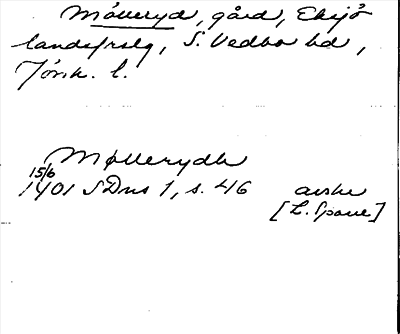 Mölleryd, gård, Eksjö
landsförs, S. Vedbo hd,
Jönk. l.
Møllerydh
15/6
1401 SDns 1, s. 46 avskr
[L. Sparre]